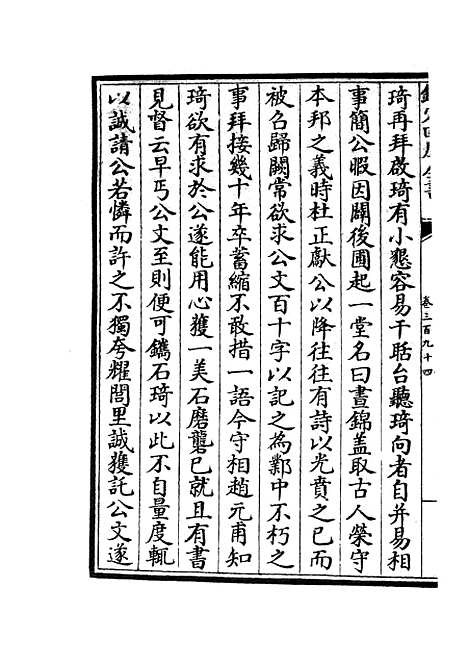 卷三百九十四
琦再拜啟琦有小懇容易干聒台聽琦向者自并易相
事簡公暇因闢後圃起一堂名曰晝錦蓋取古人榮守
本邦之義時杜正獻公以降往往有詩以光賁之已而
被召歸闕常欲求公文百十字以記之為鄴中不朽之
事拜接幾十年卒蓄縮不敢措一語今守相趙元甫知
琦欲有求於公遂能用心獲一美石磨礱已就且有書
見督云早丐公文至則便可鐫石琦以此不自量度輒
以誠請公若憐而許之不獨夸耀閭里誠獲託公文遂